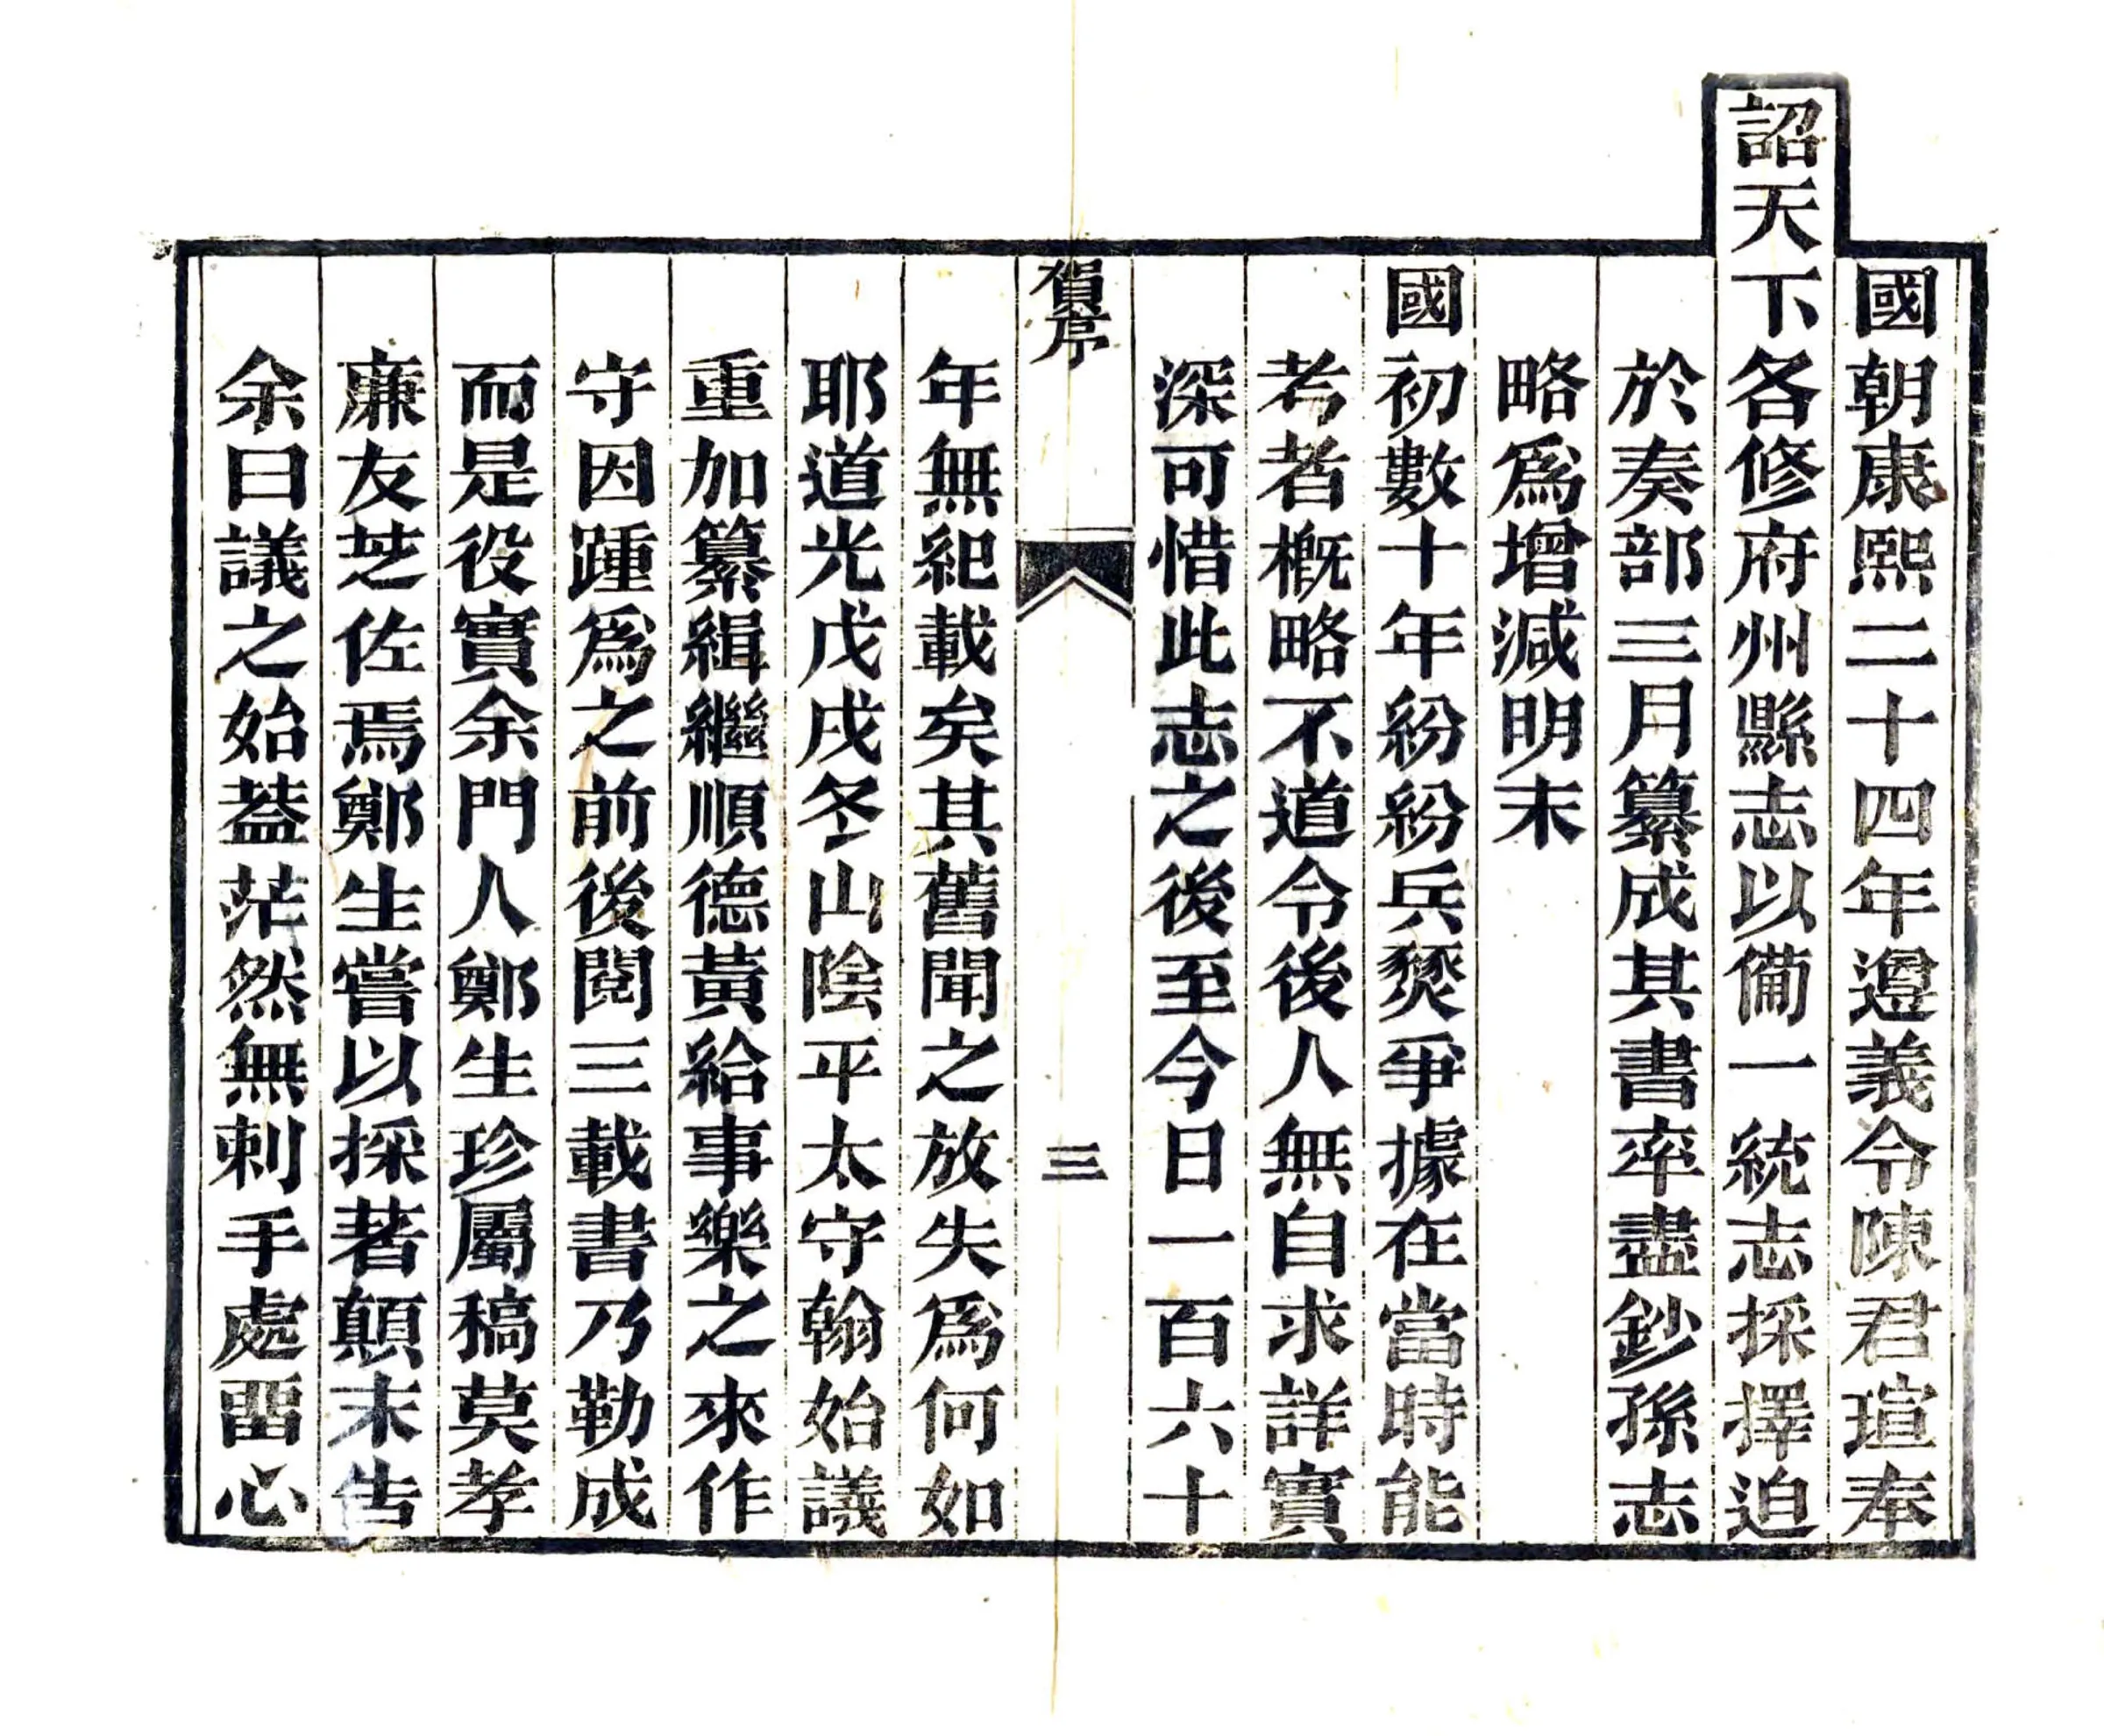 國朝康熙二十四年遵義令陳君瑄奉
詔天下各修府州縣志以備一統志採擇迫
於奏部三月纂成其書率盡鈔孫志
略爲增減明末
國初數十年紛紛兵燹爭據在當時能
考者概略不道令後人無自求詳實
深可惜此志之後至今日一百六十
賀序
三
年無紀載矣其舊聞之放失爲何如
耶道光戊戌冬山陰平太守翰始議
重加纂緝繼順德黃給事樂之來作
守因踵爲之前後閱三載書乃勒成
而是役實余門人鄭生珍屬稿莫孝
廉友芝佐焉鄭生嘗以採著顛末告
余曰議之始葢茫然無刺手處畱心